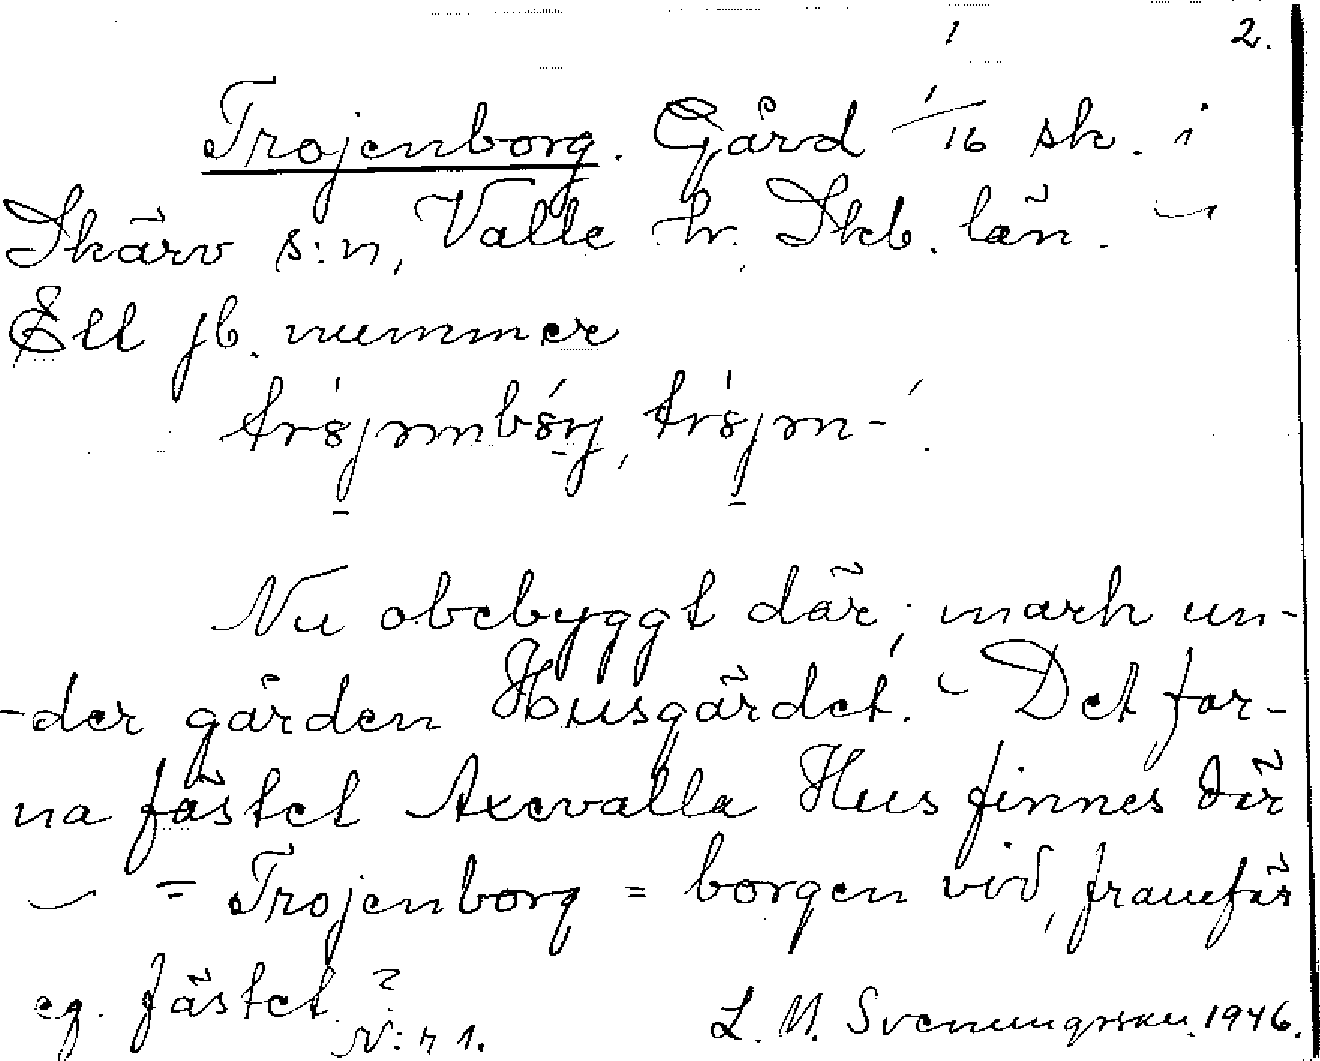 2.
Trojenborg. Gård 1/16 sk. i
Skärv s:n, Valle hr. Skb. län. -
Ett jb. nummer
Nu obebyggt där; mark un-
-der gården Husgärdet. - Det for-
na fästet Axevalla Hus finnes där
- = Trojenborg = borgen vid, framför
eg. fästet?
N:r 1. L. M. Svenungsson. 1946.